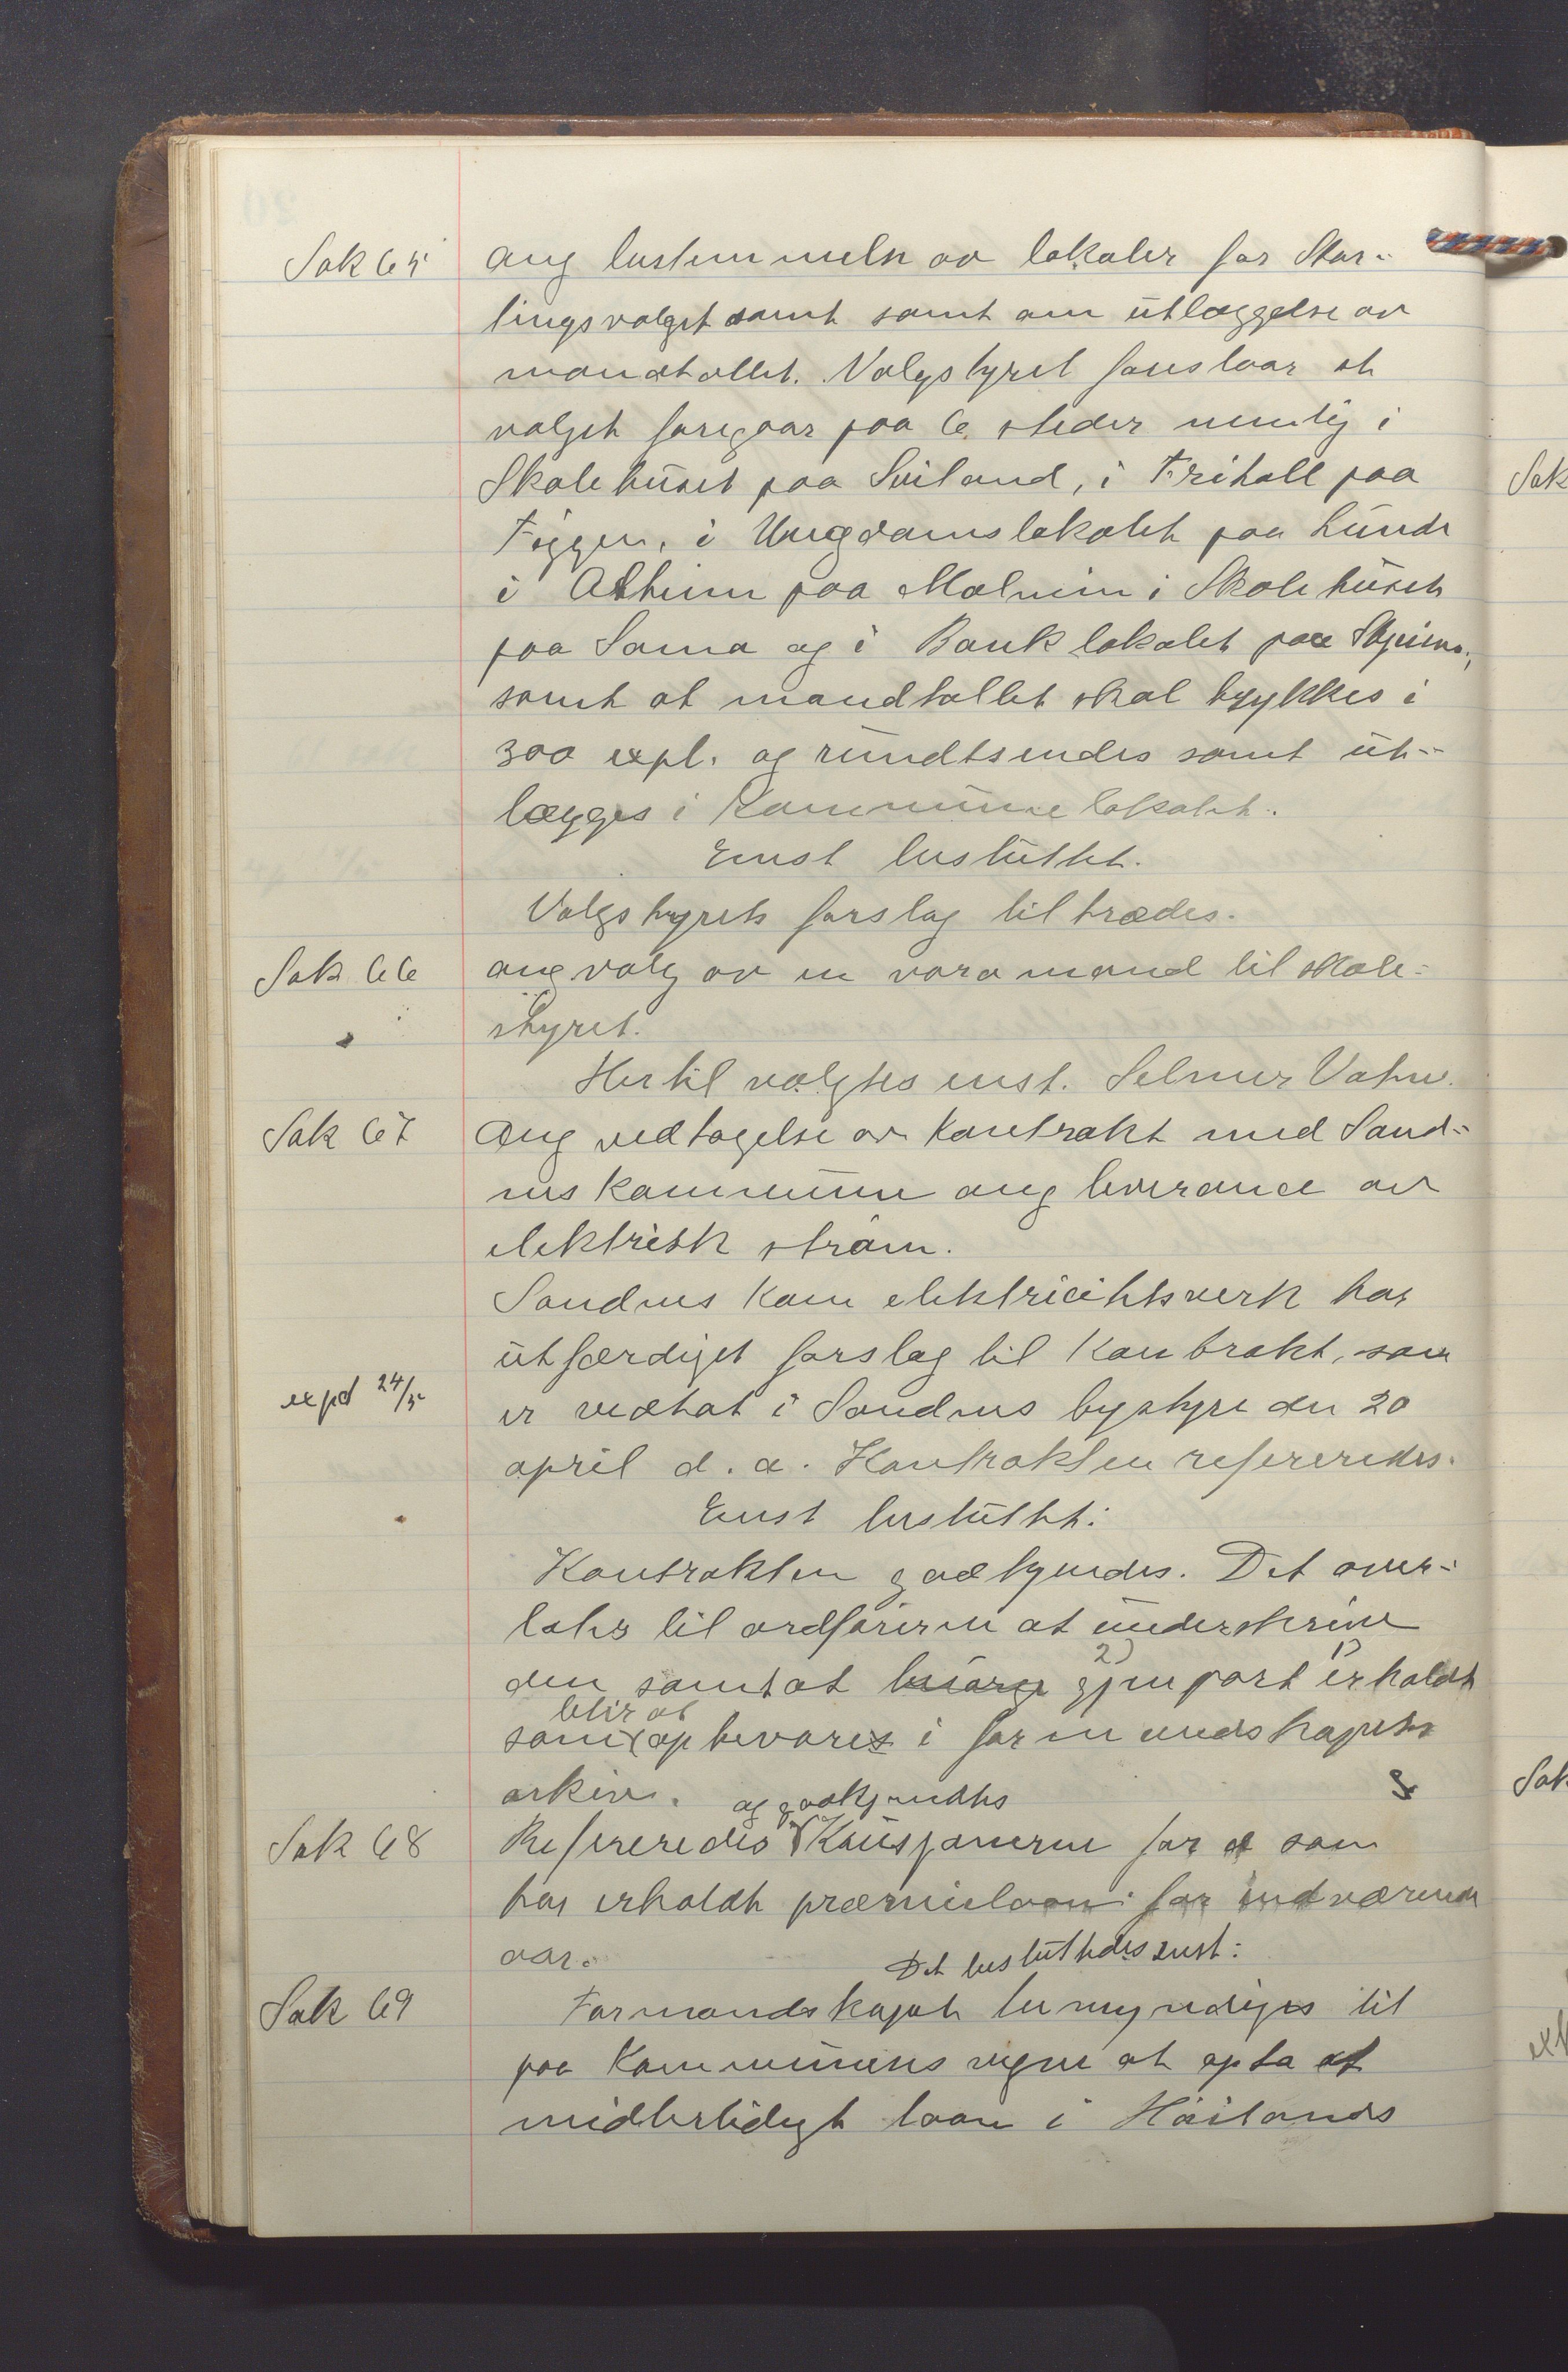 Sak 65 ang bestemmelse av lokaler for Stor-
tingsvalget samt samt om utlæggelse av
mandtallet. Valgstyret foreslaar at
valget foregaar paa 6 steder nemlig i
Skolehuset paa Sviland, i Frihall paa
Figgen, i Ungdomslokalet paa Lunde
i Alheim paa Malmein i Skolehuset
paa Soma og i Banklokalet paa
samt at mandtallet skal trykkes i
300 expl. og rundtsendes samt ut-
lægges i Kommunelokalet.
Enst besluttet.
Valgstyrets forslag tiltrædes.
Sak 66 ang valg av en varamand til skole-
styret.
Hertil valgtes enst. Selmer Vatne.
Sak 67 Ang vedtagelse av Kontrakt med Sand-
nes Kommune ang leverance av
elektrisk strøm.
Sandnes Kom elektricitetsverk har
utfærdiget forslag til Kontrakt, som
expd 24/5 er vedtat i Sandnes bystyre den 20
april d. a. Kontrakten refereredes.
Enst besluttet:
Kontrakten godkjendes. Det over-
lates til ordføreren at underskrive
2) 1)
den samt at gjenpart erholdt
blir at
som opbevares i formandskapets
arkiv. og godkjendtes
Sak 68 Refereredes Kausjonerne for d som
har erholdt præmielaan for indværende
aar. Det besluttedes enst:
Sak 69 Formandskapet bemyndiges til
paa Kommunens vegne at opta et
midlertidigt laan i Høilands
Sak
Sak